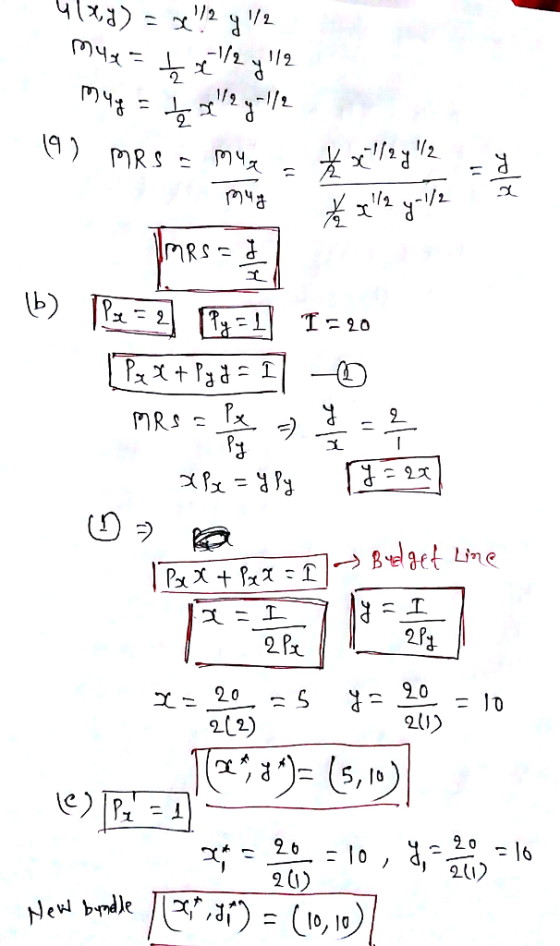 u(x,y) = x^1/2 y^1/2
MUx = 1/2 x^-1/2 y^1/2
MUy = 1/2 x^1/2 y^-1/2
(a) MRS = MUx/MUy = (1/2 x^-1/2 y^1/2)/(1/2 x^1/2 y^-1/2) = y/x
MRS = y/x
(b) Px = 2 Py = 1 I = 20
Px x + Py y = I —①
MRS = Px/Py ⇒ y/x = 2/1
x Px = y Py y = 2x
① ⇒
Px x + Px x = I → Budget Line
x = I/2Px y = I/2Py
x = 20/2(2) = 5 y = 20/2(1) = 10
(x*, y*) = (5, 10)
(c) Px' = 1
x₁* = 20/2(1) = 10 , y₁ = 20/2(1) = 10
New bundle (x₁*, y₁*) = (10, 10)